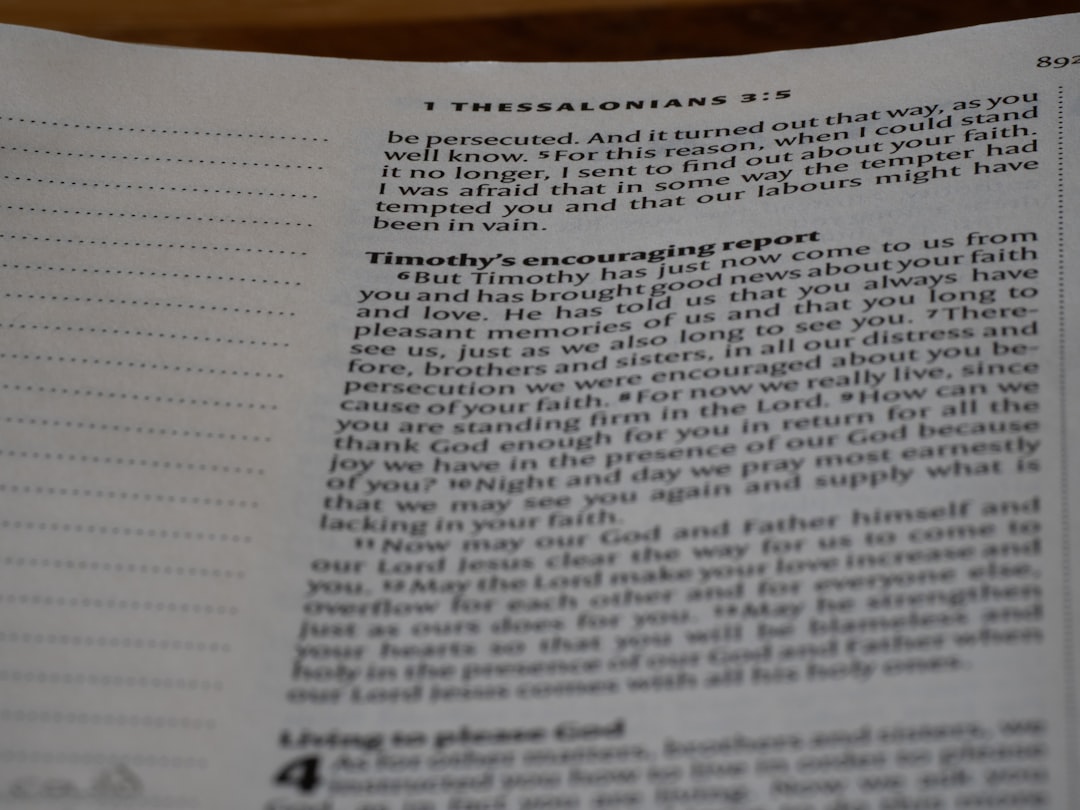 892
1 THESSALONIANS 3:5
be persecuted. And it turned out that way, as you
well know. 5 For this reason, when I could stand
it no longer, I sent to find out about your faith.
I was afraid that in some way the tempter had
tempted you and that our labours might have
been in vain.
Timothy's encouraging report
6 But Timothy has just now come to us from
you and has brought good news about your faith
and love. He has told us that you always have
pleasant memories of us and that you long to
see us, just as we also long to see you. 7 There-
fore, brothers and sisters, in all our distress and
persecution we were encouraged about you be-
cause of your faith. 8 For now we really live, since
you are standing firm in the Lord. 9 How can we
thank God enough for you in return for all the
joy we have in the presence of our God because
of you? 10 Night and day we pray most earnestly
that we may see you again and supply what is
lacking in your faith.
11 Now may our God and Father himself and
our Lord Jesus clear the way for us to come to
you. 12 May the Lord make your love increase and
overflow for each other and for everyone else,
just as ours does for you. 13 May he strengthen
your hearts so that you will be blameless and
holy in the presence of our God and Father when
our Lord Jesus comes with all his holy ones.
Living to please God
4 As for other matters, brothers and sisters, we
instructed you how to live in order to please
God, as in fact you are living. Now we ask you